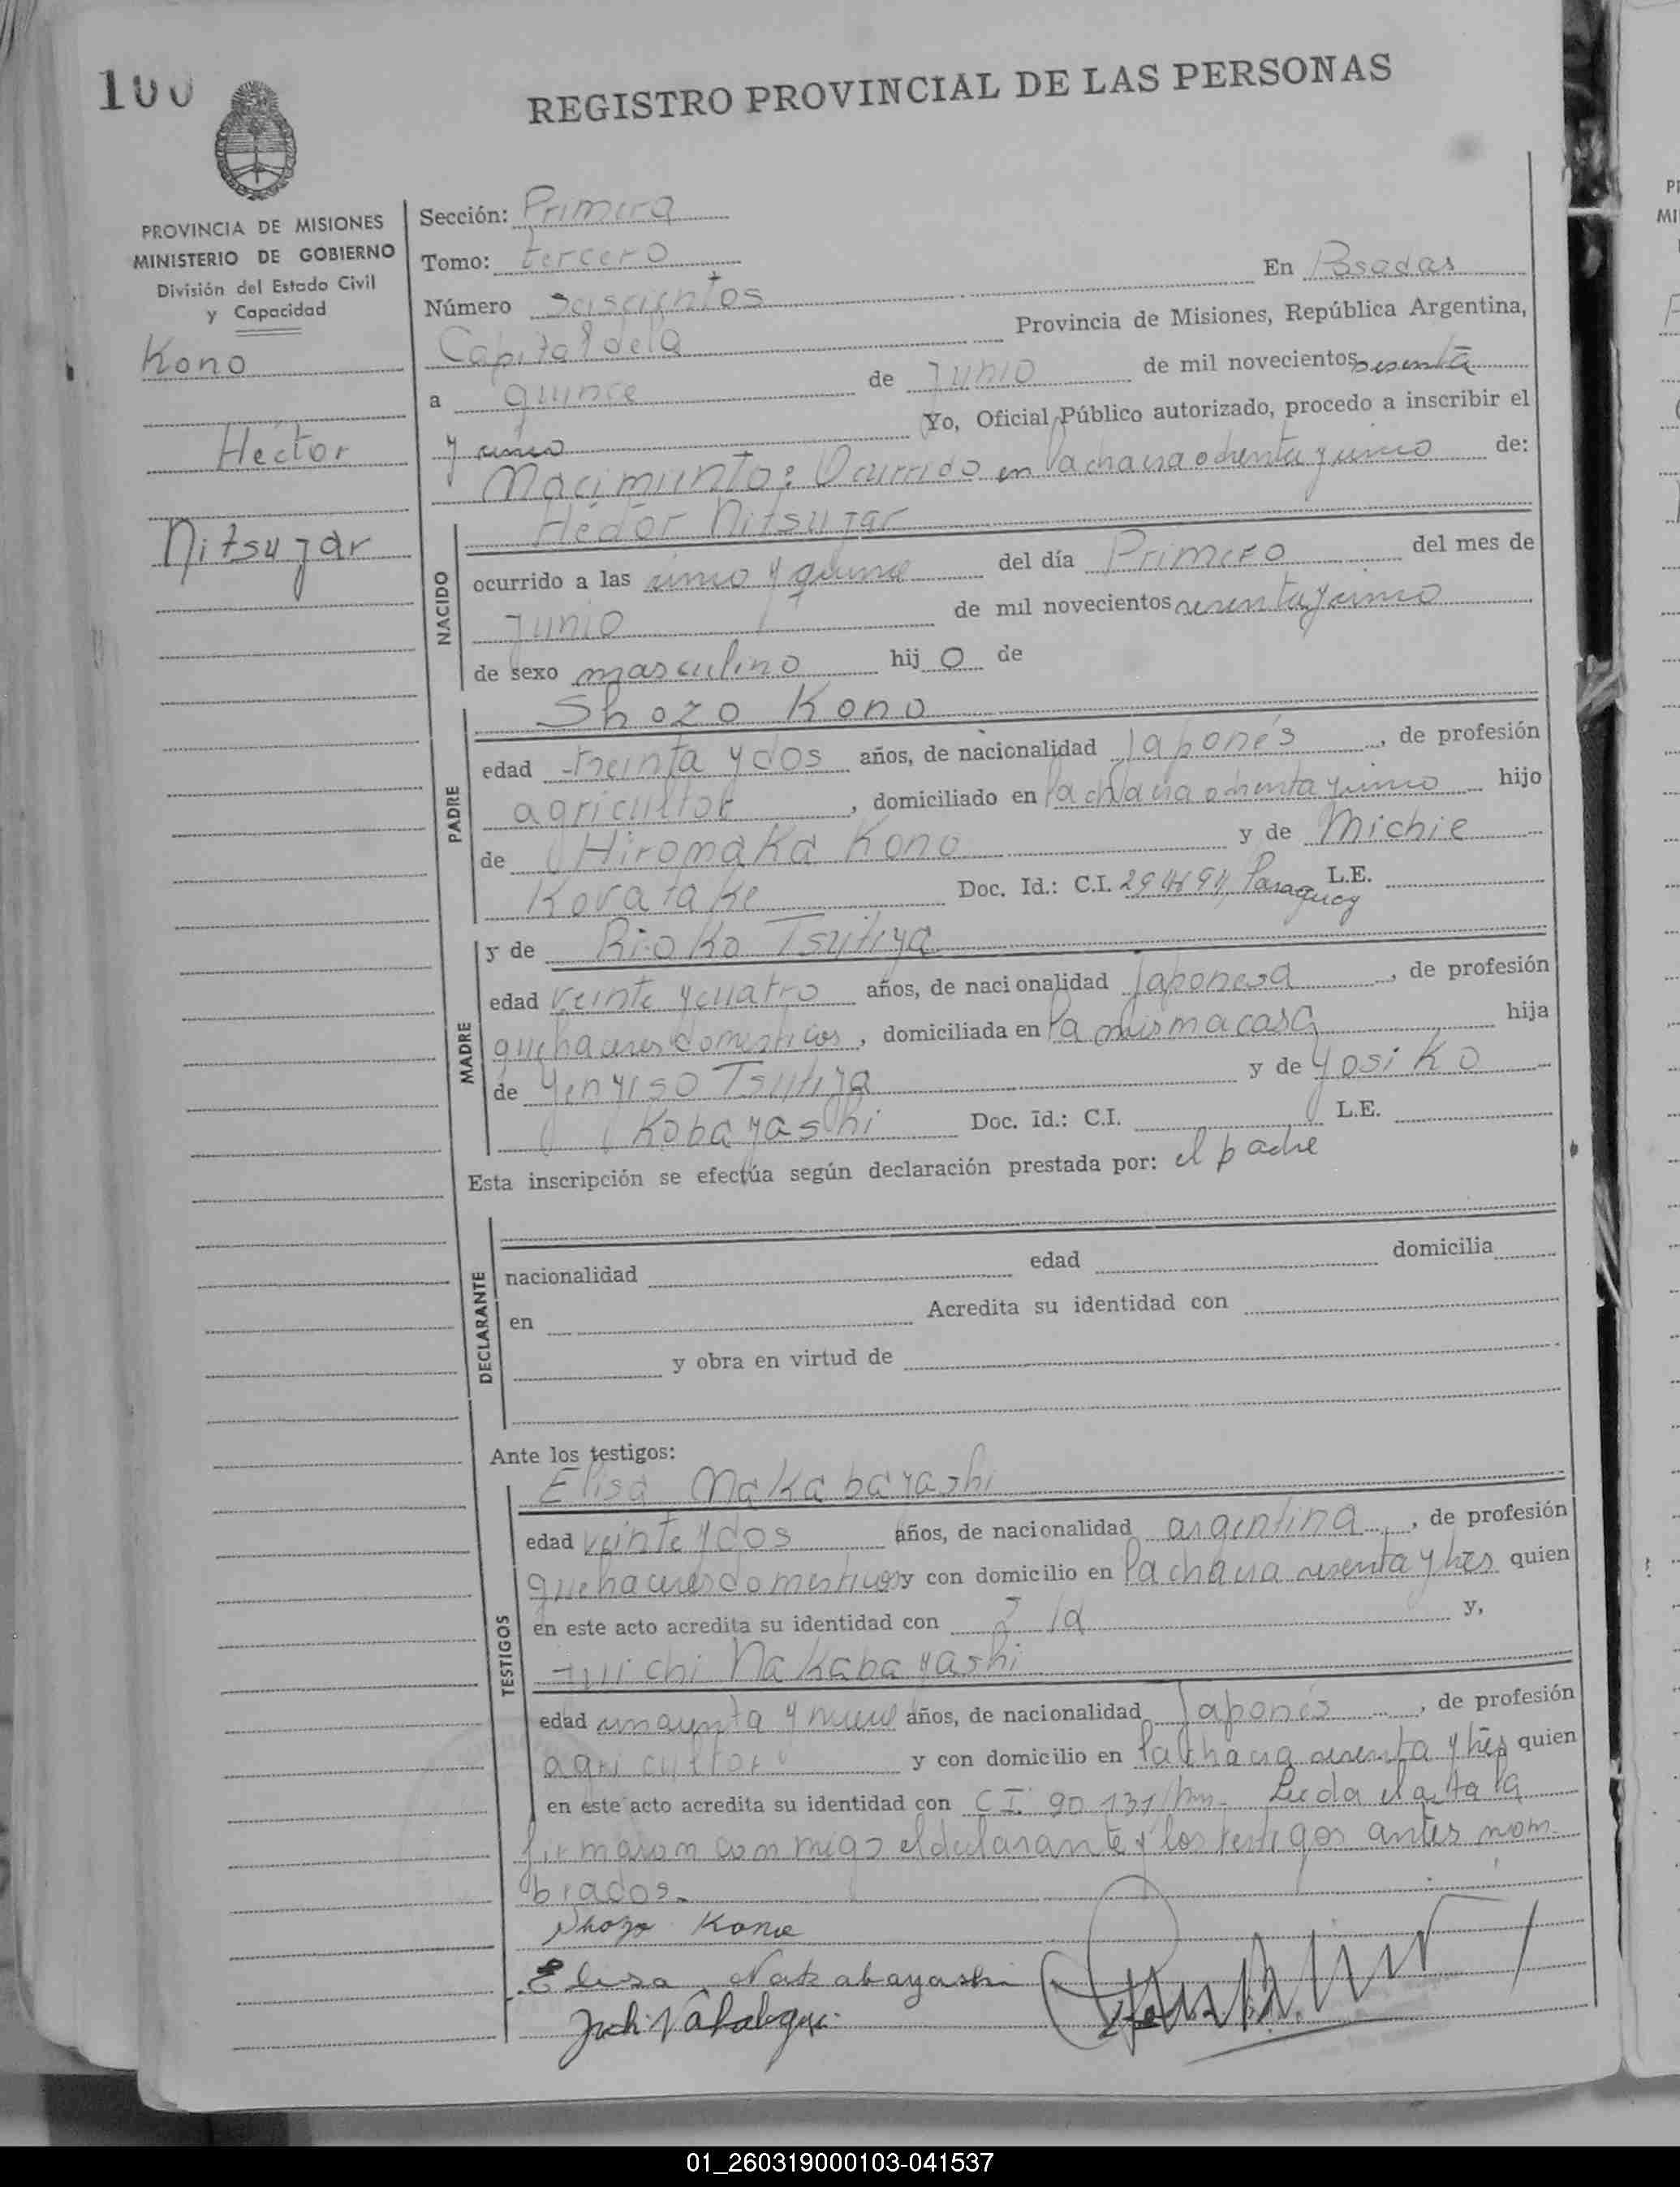 100
REGISTRO PROVINCIAL DE LAS PERSONAS
PROVINCIA DE MISIONES
MINISTERIO DE GOBIERNO
División del Estado Civil
y Capacidad
Kono
Héctor
Nitsugar
Sección: Primera
Tomo: tercero
Número Seiscientos En Posadas
Capital de la Provincia de Misiones, República Argentina,
a quince de Junio de mil novecientos sesenta
y cinco Yo, Oficial Público autorizado, procedo a inscribir el
Nacimiento: Ocurrido en la chacra ochenta y cinco de:
NACIDO
Héctor Nitsugar
ocurrido a las cinco y quince del día Primero del mes de
Junio de mil novecientos sesenta y cinco
de sexo masculino hij o de
PADRE
Shozo Kono
edad treinta y dos años, de nacionalidad Japonés, de profesión
agricultor, domiciliado en la chacra ochenta y cinco hijo
de Hiromaka Kono y de Michie
Kovatake Doc. Id.: C.I. Paraguay L.E.
MADRE
y de Rioko Tsutiya
edad veinte y cuatro años, de nacionalidad Japonesa, de profesión
quehaceres domesticos, domiciliada en la misma casa hija
de Tsutiya y de Yosiko
Kobayashi Doc. Id.: C.I. L.E.
Esta inscripción se efectúa según declaración prestada por: el padre
DECLARANTE
nacionalidad edad domicilia
en Acredita su identidad con
y obra en virtud de
Ante los testigos:
TESTIGOS
Elisa Nakabayashi
edad veinte y dos años, de nacionalidad argentina, de profesión
quehaceres domesticos y con domicilio en la chacra sesenta y tres quien
en este acto acredita su identidad con y,
Nakabayashi
edad cincuenta y nueve años, de nacionalidad Japonés, de profesión
agricultor y con domicilio en la chacra sesenta y tres quien
en este acto acredita su identidad con C I. 90 131 Leida el acta la
firmaron conmigo el declarante y los testigos antes nom-
brados.
Shozo Kono
Elisa Nakabayashi
01_260319000103-041537